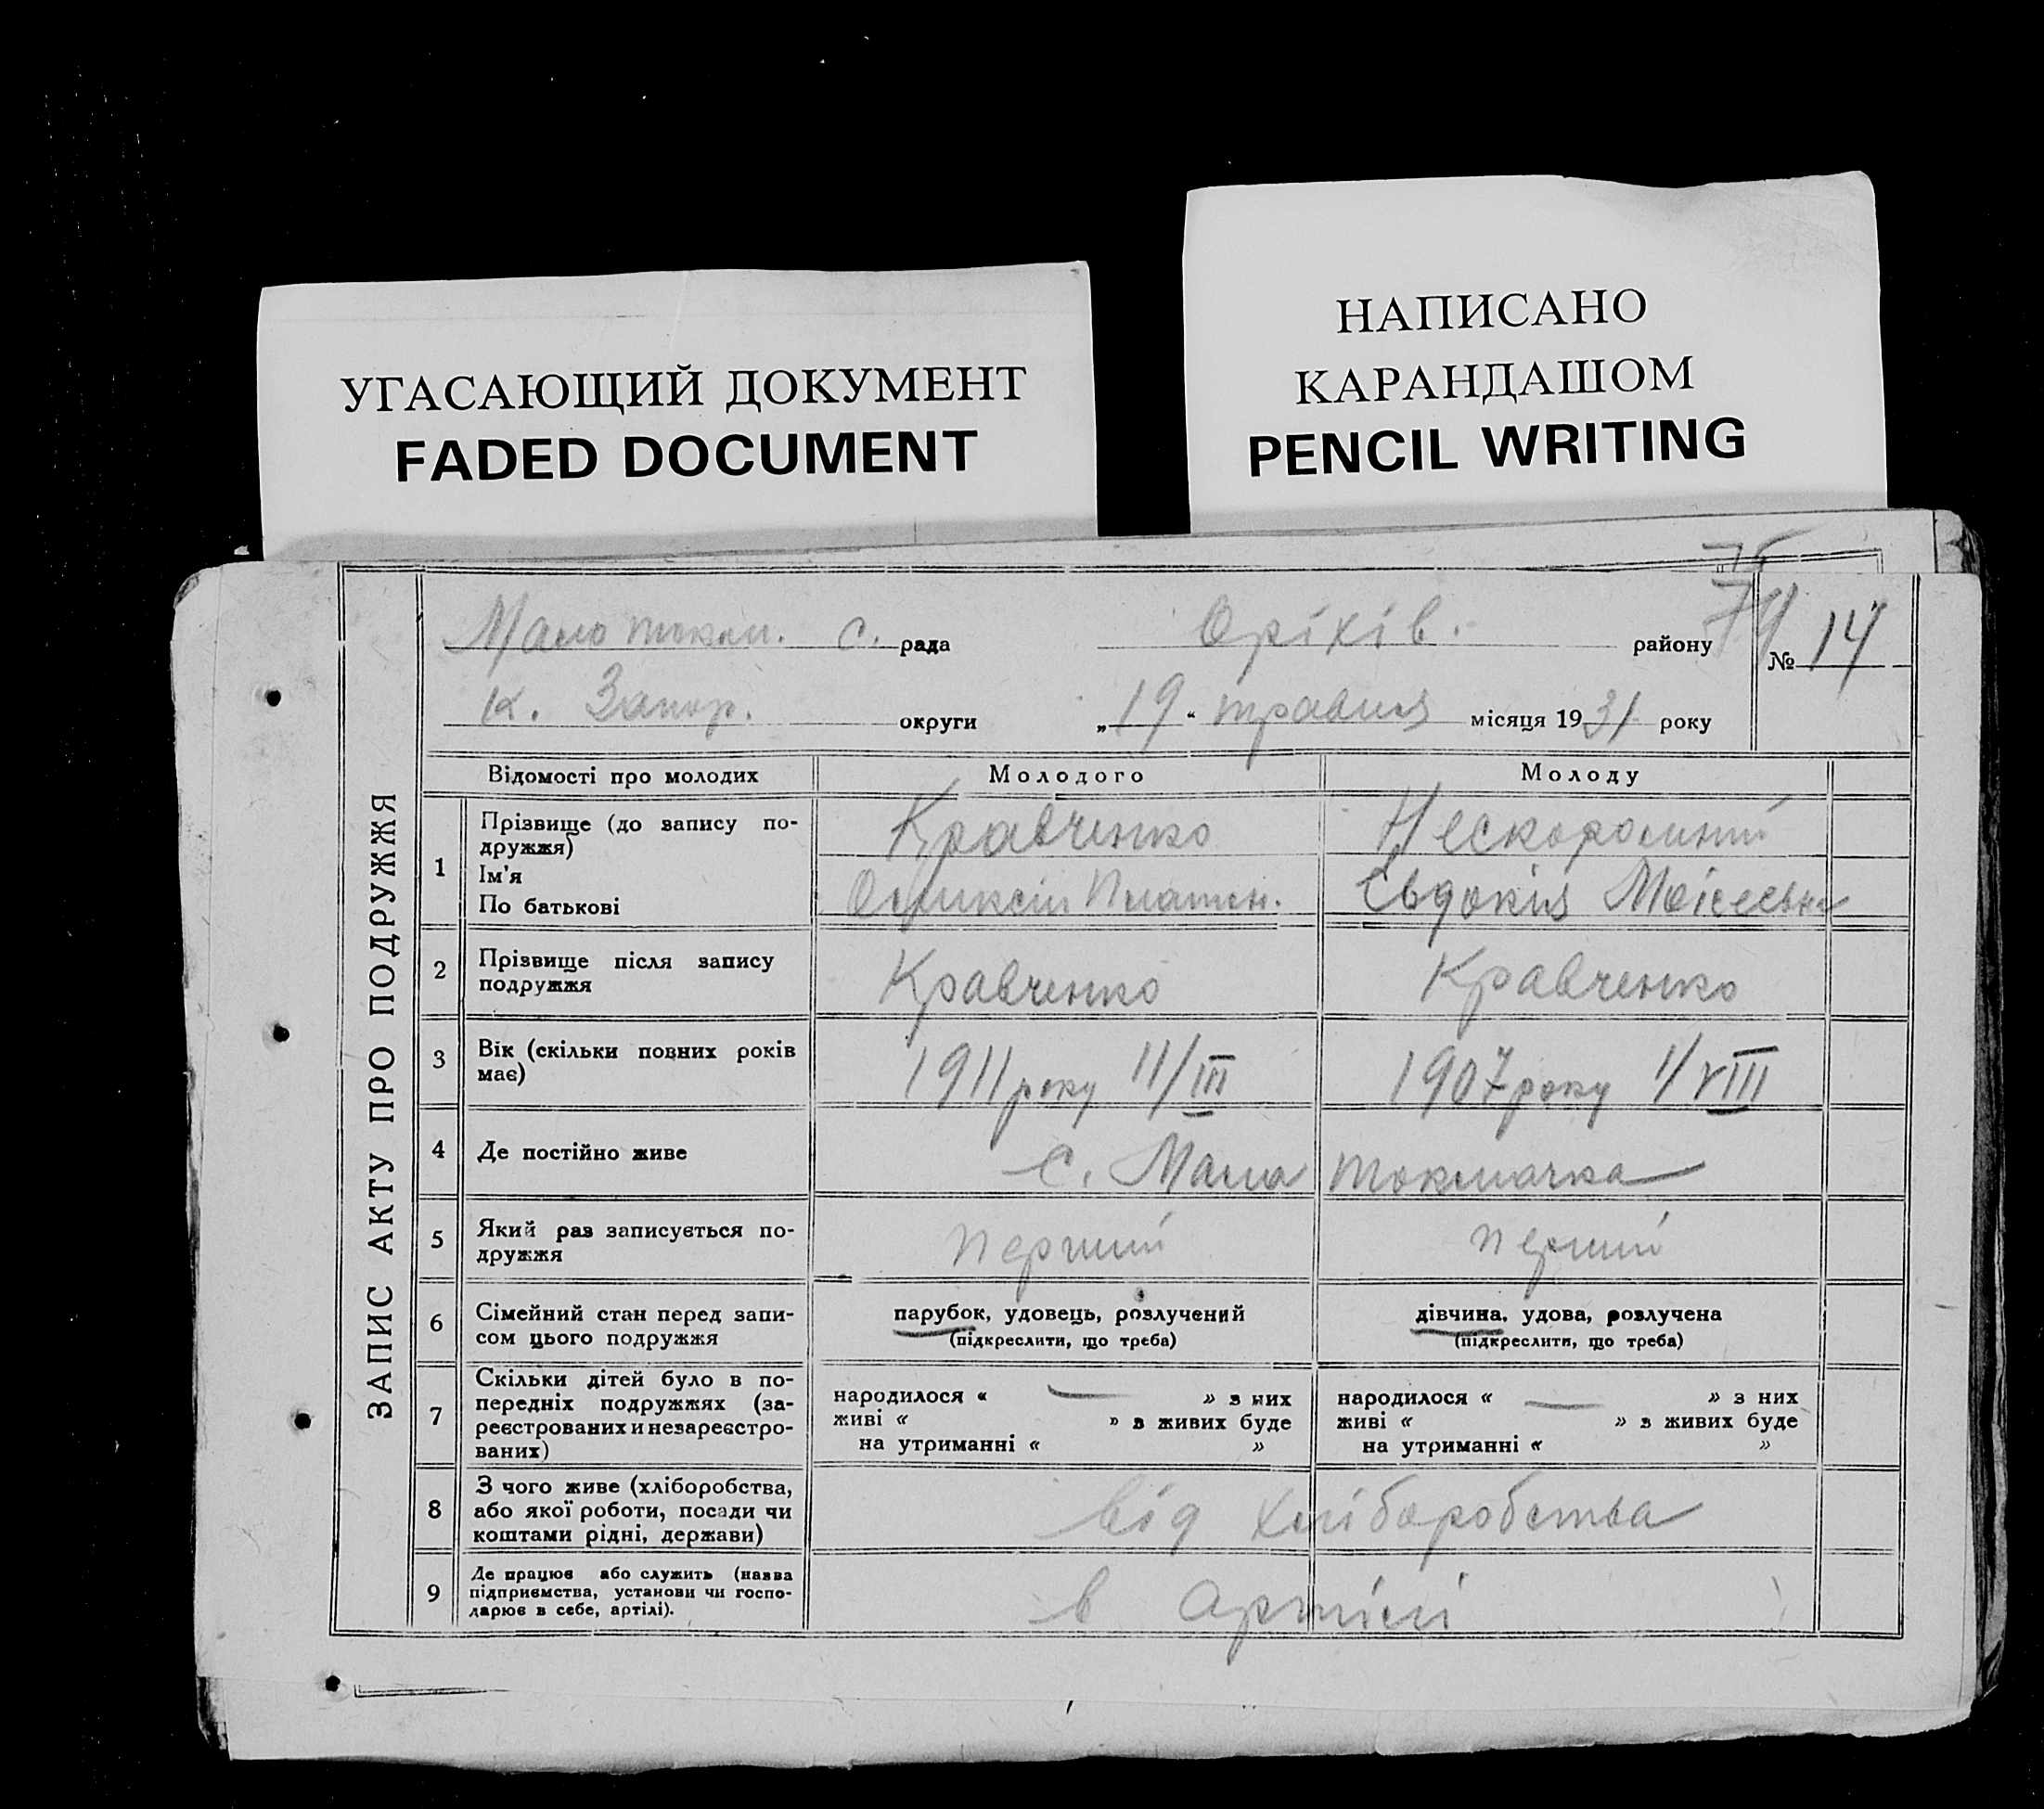 УГАСАЮЩИЙ ДОКУМЕНТ
FADED DOCUMENT
НАПИСАНО
КАРАНДАШОМ
PENCIL WRITING
75
74
ЗАПИС АКТУ ПРО ПОДРУЖЖЯ
Мало токм. с. рада Оріхів. району № 14
к. Запор. округи „19“ травня місяця 1931 року
Відомості про молодих Молодого Молоду
1 Прізвище (до запису по-
дружжя)
Ім'я
По батькові
Кравченко Нескоромний
Платон. Євдокія Моісеєвна
2 Прізвище після запису
подружжя
Кравченко Кравченко
3 Вік (скільки повних років
має)
1911 року 11/III 1907 року 1/VIII
4 Де постійно живе с. Мала токмачка
5 Який раз записується по-
дружжя
перший перший
6 Сімейний стан перед запи-
сом цього подружжя
парубок, удовець, розлучений
(підкреслити, що треба)
дівчина, удова, розлучена
(підкреслити, що треба)
7 Скільки дітей було в по-
передніх подружжях (за-
реєстрованих и незареєстро-
ваних)
народилося « — » з них
живі « » з живих буде
на утриманні « »
народилося « — » з них
живі « » з живих буде
на утриманні « »
8 З чого живе (хліборобства,
або якої роботи, посади чи
коштами рідні, держави)
від хліборобства
9 Де працює або служить (назва
підприємства, установи чи госпо-
дарює в себе, артілі).
в артілі